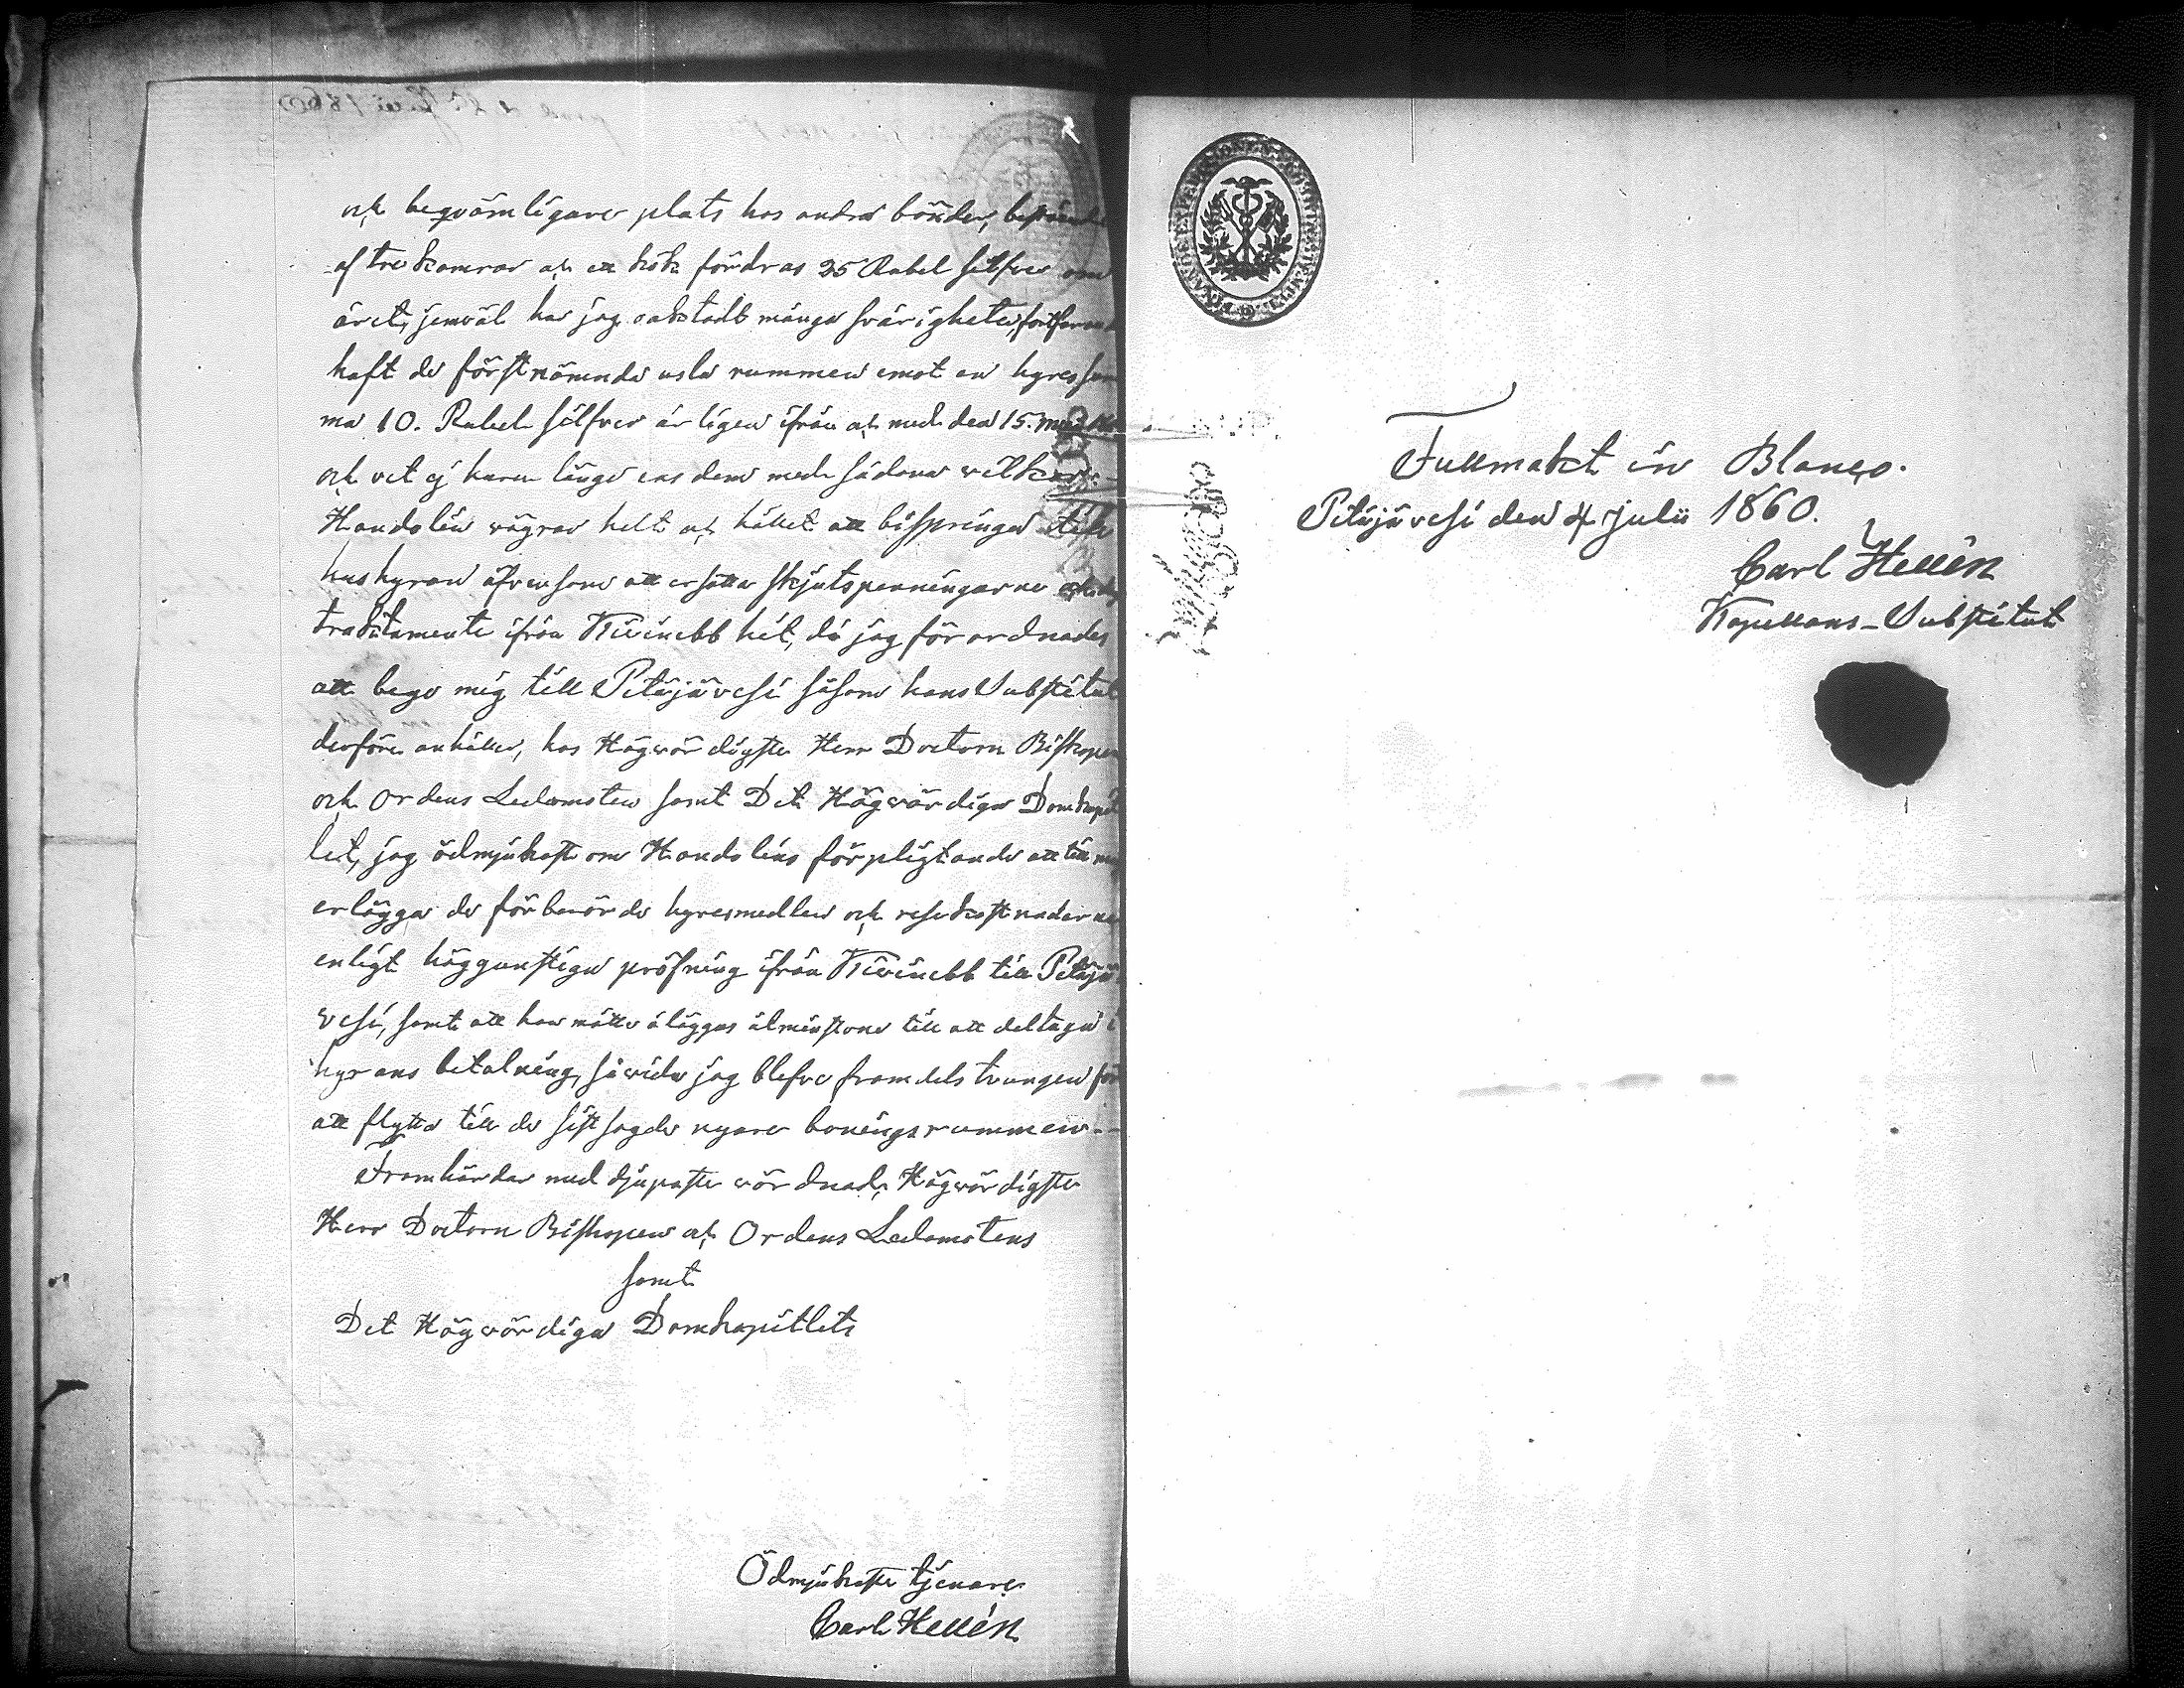 och beqvämligare plats hos andra bönder, bestående
af tre kamrar och ett kök fordras 25 Rubel silfver om
året, jemväl har jag oaktadt många svårigheter, fortfarande
haft de förstnämnda usla rummen emot en hyressum
ma 10. Rubel silfver årligen ifrån och med den 15. Maij
och vet ej huru länge ens dem med sådana vilkor.
Handolin vägrar helt och hållet att bispringa till
hushyran äfvensom att ersätta skjutspenningarne och
traktamente ifrån Kivinebb hit, då jag förordnades
att bege mig till Petäjävesi såsom hans Substitut
derföre anhåller, hos Högvördigste Herr Doctorn Biskopen
och Ordens Ledamoten samt Det Högvördiga Domkapit
let, jag ödmjukast om Handolins förpligtande att till mig
erlägga de förberörde hyresmedlen och resekostnaderne
enligt höggunstiga pröfning ifrån Kivinebb till Petäjä
vesi, samt att han måtte åläggas åtminstone till att deltaga i
hyrans betalning, såvida jag blefve framdels tvungen för
att flytta till de sistsagde nyare boningsrummen.-
Framhärdar med djupaste vördnad, Högvördigste
Herr Doctorn Biskopen och Ordens Ledamotens
samt
Det Högvördiga Domkapitlets
Ödmjukaste tjenare
Carl Hellén
Fullmakt in Blanco.
Petäjävesi den 4 Julii 1860.
Carl Hellén
Kapellans-Substitut